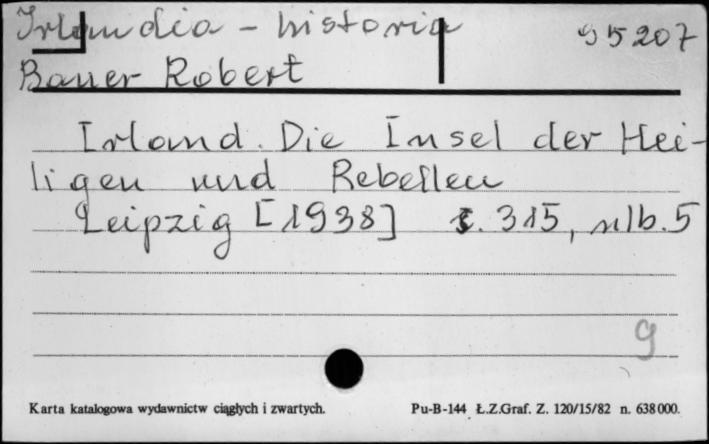 Irlandia - historia 95207
Bauer Robert
Irland. Die Insel der Hei-
ligen und Rebellen
Leipzig [1938] s. 315, nlb. 5
9
Karta katalogowa wydawnictw ciągłych i zwartych. Pu-B-144 Ł.Z.Graf. Z. 120/15/82 n. 638000.